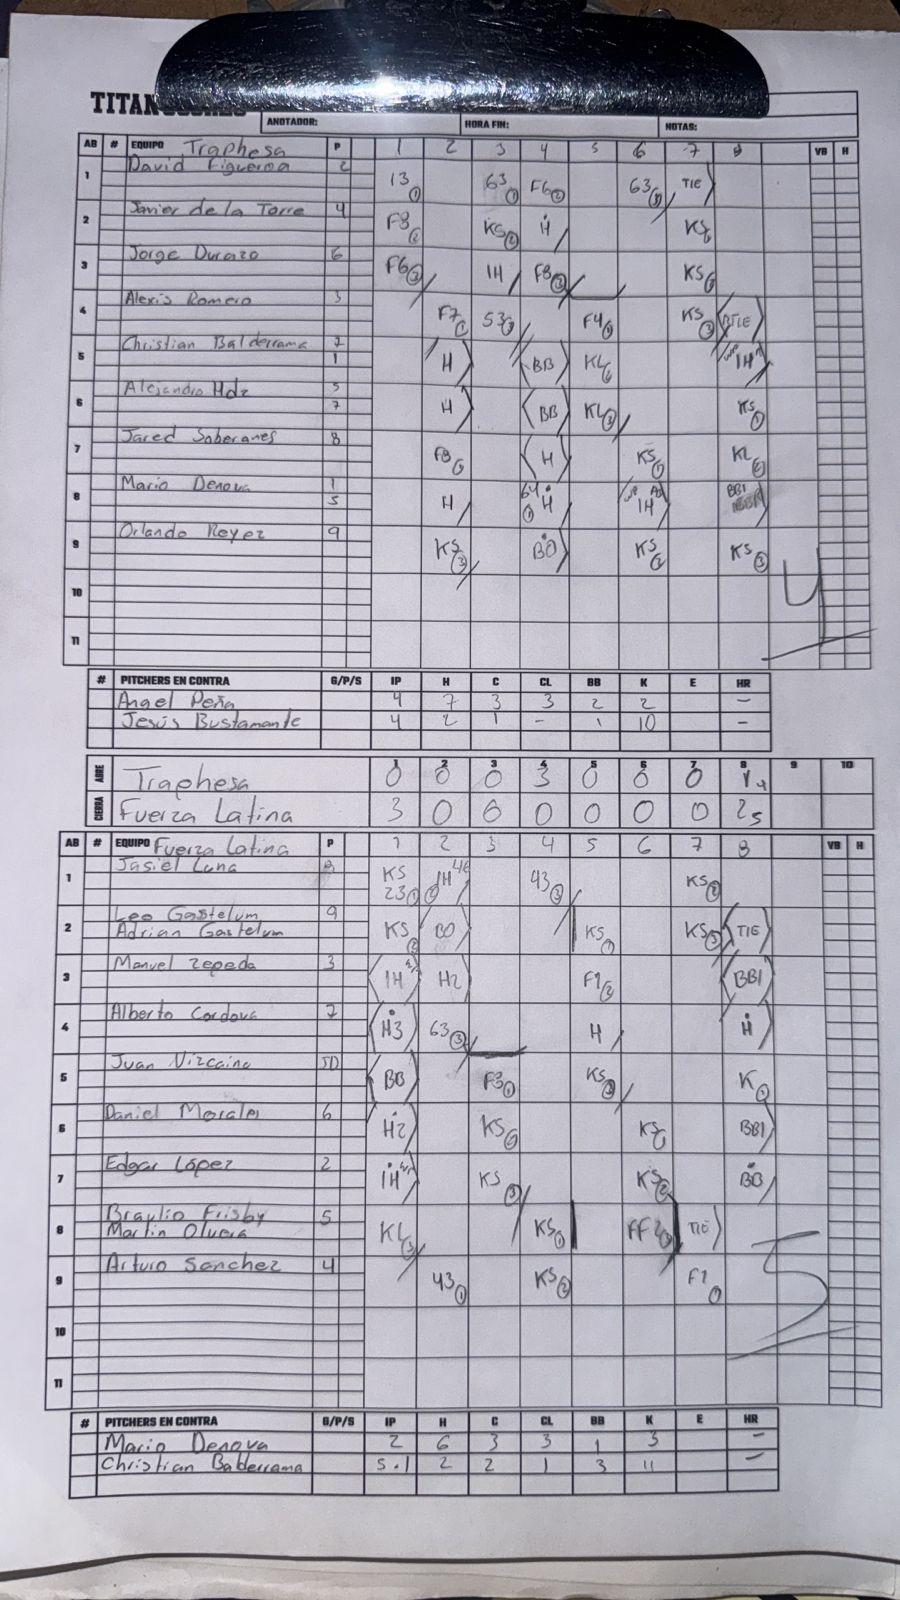 TITAN
ANOTADOR: HORA FIN: NOTAS:
AB # EQUIPO Traphesa P 1 2 3 4 5 6 7 8 VB H
1 David Figueroa 2 13 1 63 1 F6 2 63 3 TIE
2 Javier de la Torre 4 F8 2 KS 2 H KS
3 Jorge Durazo 6 F6 3 1H F8 3 KS
4 Alexis Romero 3 F7 1 53 3 F4 1 KS 3 BTIE
5 Christian Balderrama 7 1 H BB KL 1H
6 Alejandro Hdz 5 7 H BB KL 3 KS 1
7 Jared Soberanes 8 F8 H KS 1 KL 2
8 Mario Denova 1 5 H 64 1 H 1H BBI
9 Orlando Reyez 9 KS 3 BO KS 2 KS 3
10
11
4
# PITCHERS EN CONTRA G/P/S IP H C CL BB K E HR
Angel Peña 4 7 3 3 2 2 -
Jesús Bustamante 4 2 1 - 1 10 -
1 2 3 4 5 6 7 8 9 10
ABRE Traphesa 0 0 0 3 0 0 0 1 4
CIERRA Fuerza Latina 3 0 0 0 0 0 0 2 5
AB # EQUIPO Fuerza Latina P 1 2 3 4 5 6 7 8 VB H
1 Jasiel Luna 8 KS 23 1 1H 46 2 43 3 KS 2
2 Leo Gastelum 9 Adrian Gastelum KS 2 BO KS 1 KS 3 TIE
3 Manuel Zepeda 3 1H H2 F1 2 BBI
4 Alberto Cordova 7 H3 63 3 H H
5 Juan Vizcaino BB F3 1 KS 3 K
6 Daniel Morales 6 H2 KS 2 KS BBI
7 Edgar López 2 1H KS 3 KS 2 BB
8 Braylio Frisby 5 Martin Olvera KL 3 KS 1 FF2 3 TIE
9 Arturo Sanchez 4 43 1 KS 2 F1
10
11
5
# PITCHERS EN CONTRA G/P/S IP H C CL BB K E HR
Mario Denova 2 6 3 3 1 3 -
Christian Balderrama 5.1 2 2 1 3 11 -